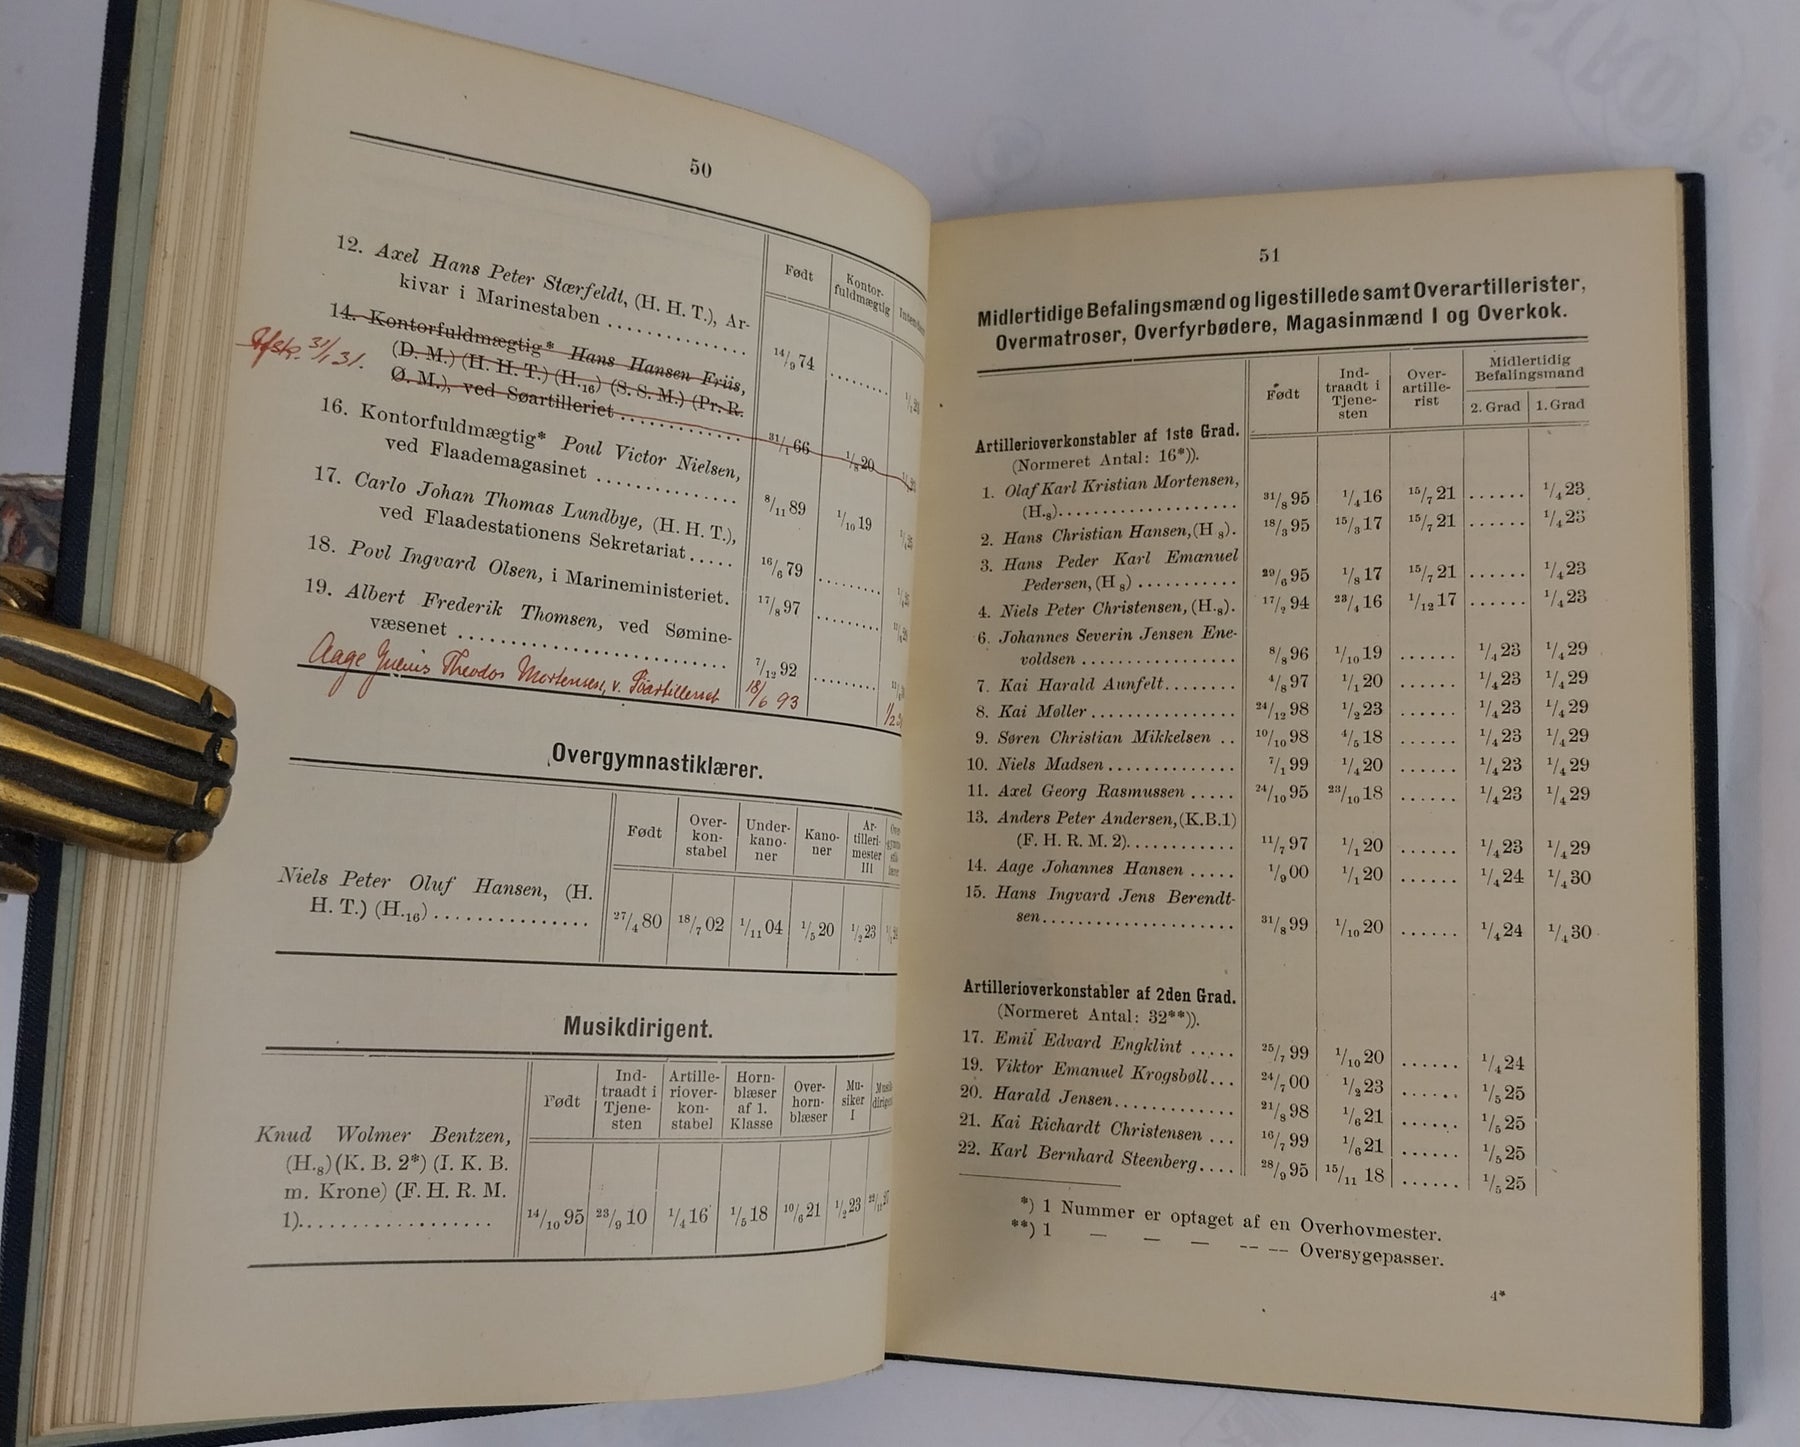 50
Født
Kontor-
fuldmægtig
12. Axel Hans Peter Stærfeldt, (H. H. T.), Ar-
kivar i Marinestaben ............... 14/9 74 ........
14. Kontorfuldmægtig* Hans Hansen Friis,
Afsk. 31/1 31.
(D. M.) (H. H. T.) (H.16) (S. S. M.) (Pr. R.
Ø. M.), ved Søartilleriet ............. 31/1 66 1/8 20
16. Kontorfuldmægtig* Poul Victor Nielsen,
ved Flaademagasinet ............... 8/11 89 1/10 19
17. Carlo Johan Thomas Lundbye, (H. H. T.),
ved Flaadestationens Sekretariat..... 16/6 79 ........
18. Povl Ingvard Olsen, i Marineministeriet. 17/8 97 ........
19. Albert Frederik Thomsen, ved Sømine-
væsenet ............................ 7/12 92 ........
Aage Theodor Mortensen, v. Søartilleriet 18/6 93
Overgymnastiklærer.
Født
Over-
kon-
stabel
Under-
kano-
ner
Kano-
ner
Ar-
tilleri-
mester
III
Niels Peter Oluf Hansen, (H.
H. T.) (H.16) ................ 27/4 80 18/7 02 1/11 04 1/5 20 1/2 23
Musikdirigent.
Født
Ind-
traadt i
Tjene-
sten
Artille-
riover-
kon-
stabel
Horn-
blæser
af 1.
Klasse
Over-
horn-
blæser
Mu-
siker
I
Knud Wolmer Bentzen,
(H.8) (K. B. 2*) (I. K. B.
m. Krone) (F. H. R. M.
1).................. 14/10 95 23/9 10 1/4 16 1/5 18 10/6 21 1/2 23
51
Midlertidige Befalingsmænd og ligestillede samt Overartillerister,
Overmatroser, Overfyrbødere, Magasinmænd I og Overkok.
Født
Ind-
traadt i
Tjene-
sten
Over-
artille-
rist
Midlertidig
Befalingsmand
2. Grad 1. Grad
Artillerioverkonstabler af 1ste Grad.
(Normeret Antal: 16*)).
1. Olaf Karl Kristian Mortensen,
(H.8)..................... 31/8 95 1/4 16 15/7 21 ...... 1/4 23
2. Hans Christian Hansen, (H 8). 18/3 95 15/3 17 15/7 21 ...... 1/4 23
3. Hans Peder Karl Emanuel
Pedersen, (H 8) ........... 29/6 95 1/8 17 15/7 21 ...... 1/4 23
4. Niels Peter Christensen, (H.8). 17/2 94 23/4 16 1/12 17 ...... 1/4 23
6. Johannes Severin Jensen Ene-
voldsen .................. 8/8 96 1/10 19 ...... 1/4 23 1/4 29
7. Kai Harald Aunfelt........ 4/8 97 1/1 20 ...... 1/4 23 1/4 29
8. Kai Møller ................ 24/12 98 1/2 23 ...... 1/4 23 1/4 29
9. Søren Christian Mikkelsen .. 10/10 98 4/5 18 ...... 1/4 23 1/4 29
10. Niels Madsen .............. 7/1 99 1/4 20 ...... 1/4 23 1/4 29
11. Axel Georg Rasmussen ..... 24/10 95 23/10 18 ...... 1/4 23 1/4 29
13. Anders Peter Andersen, (K.B.1)
(F. H. R. M. 2)............ 11/7 97 1/1 20 ...... 1/4 23 1/4 29
14. Aage Johannes Hansen ..... 1/9 00 1/1 20 ...... 1/4 24 1/4 30
15. Hans Ingvard Jens Berendt-
sen ...................... 31/8 99 1/10 20 ...... 1/4 24 1/4 30
Artillerioverkonstabler af 2den Grad.
(Normeret Antal: 32**)).
17. Emil Edvard Engklint ..... 25/7 99 1/10 20 ...... 1/4 24
19. Viktor Emanuel Krogsbøll... 24/7 00 1/2 23 ...... 1/5 25
20. Harald Jensen............. 21/8 98 1/6 21 ...... 1/5 25
21. Kai Richardt Christensen ... 16/7 99 1/6 21 ...... 1/5 25
22. Karl Bernhard Steenberg.... 28/9 95 15/11 18 ...... 1/5 25
*) 1 Nummer er optaget af en Overhovmester.
**) 1 — — — -- -- Oversygepasser.
4*